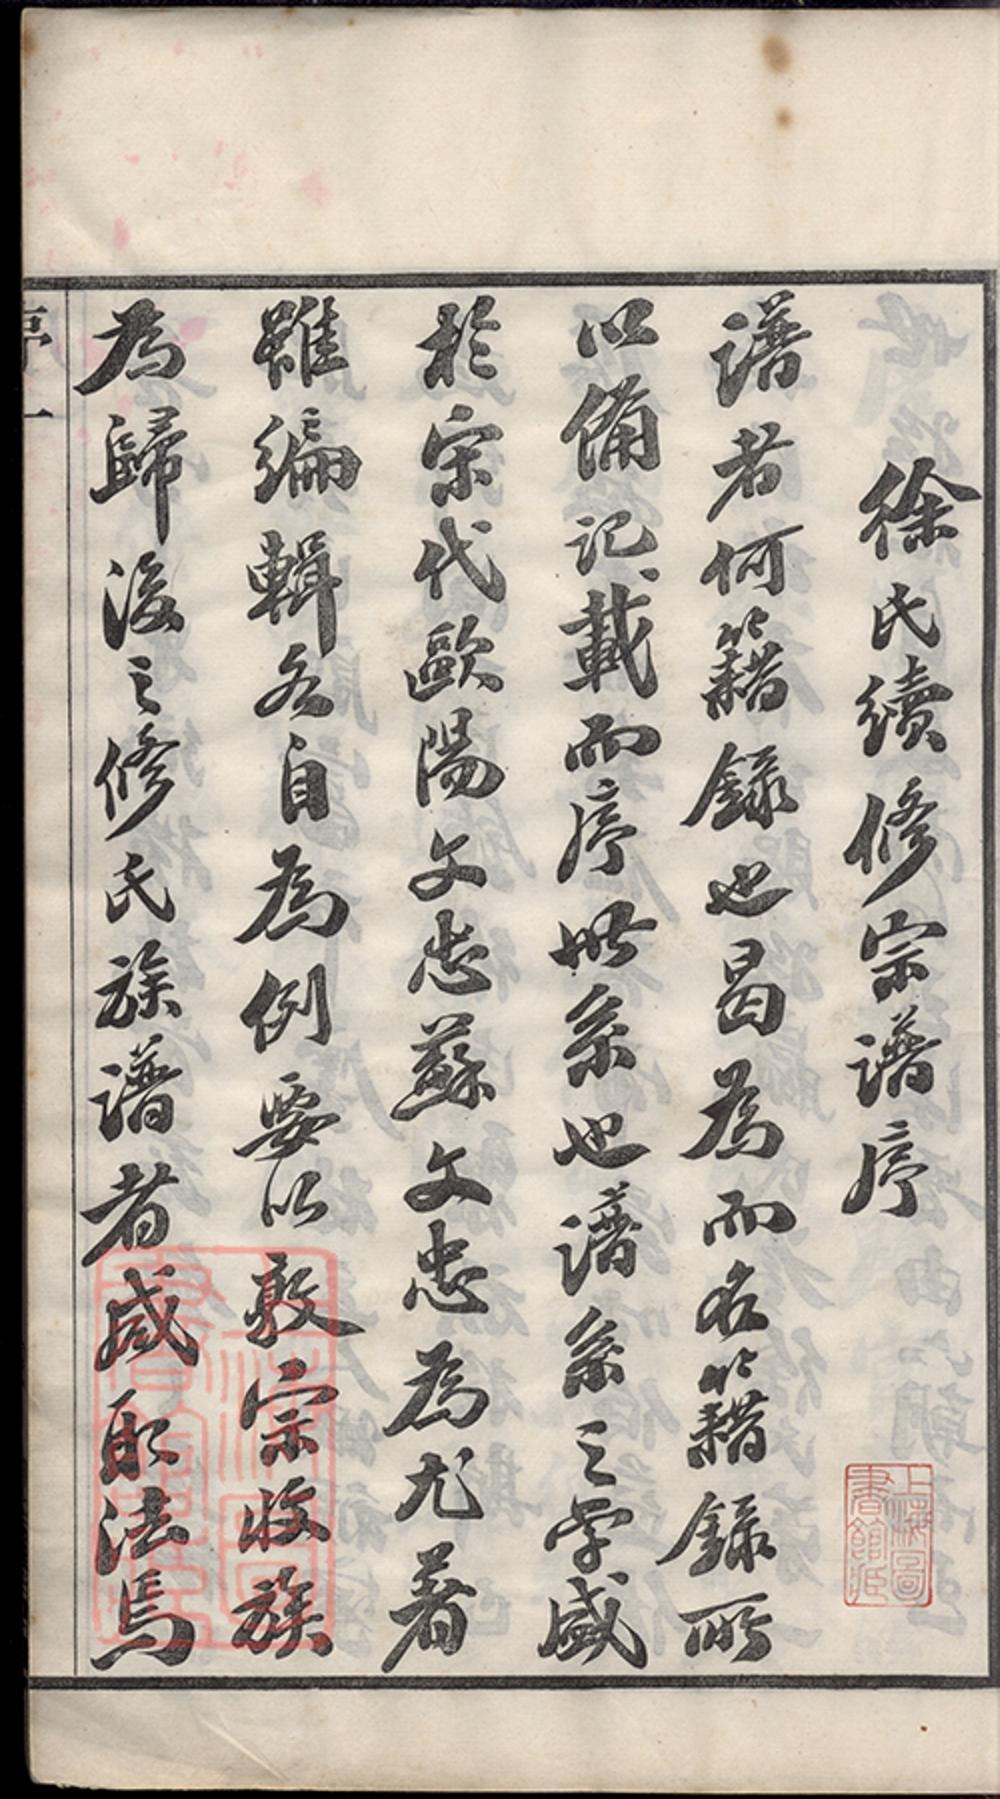 徐氏續修宗譜序
譜者何籍錄也曷為而名籍錄所
以備記載而序世系也譜系之學盛
於宗代歐陽文忠蘇文忠為尤著
雖編輯各自為例要以敦宗收族
為歸後之修氏族譜者咸取法焉
序 一
上海圖書館藏